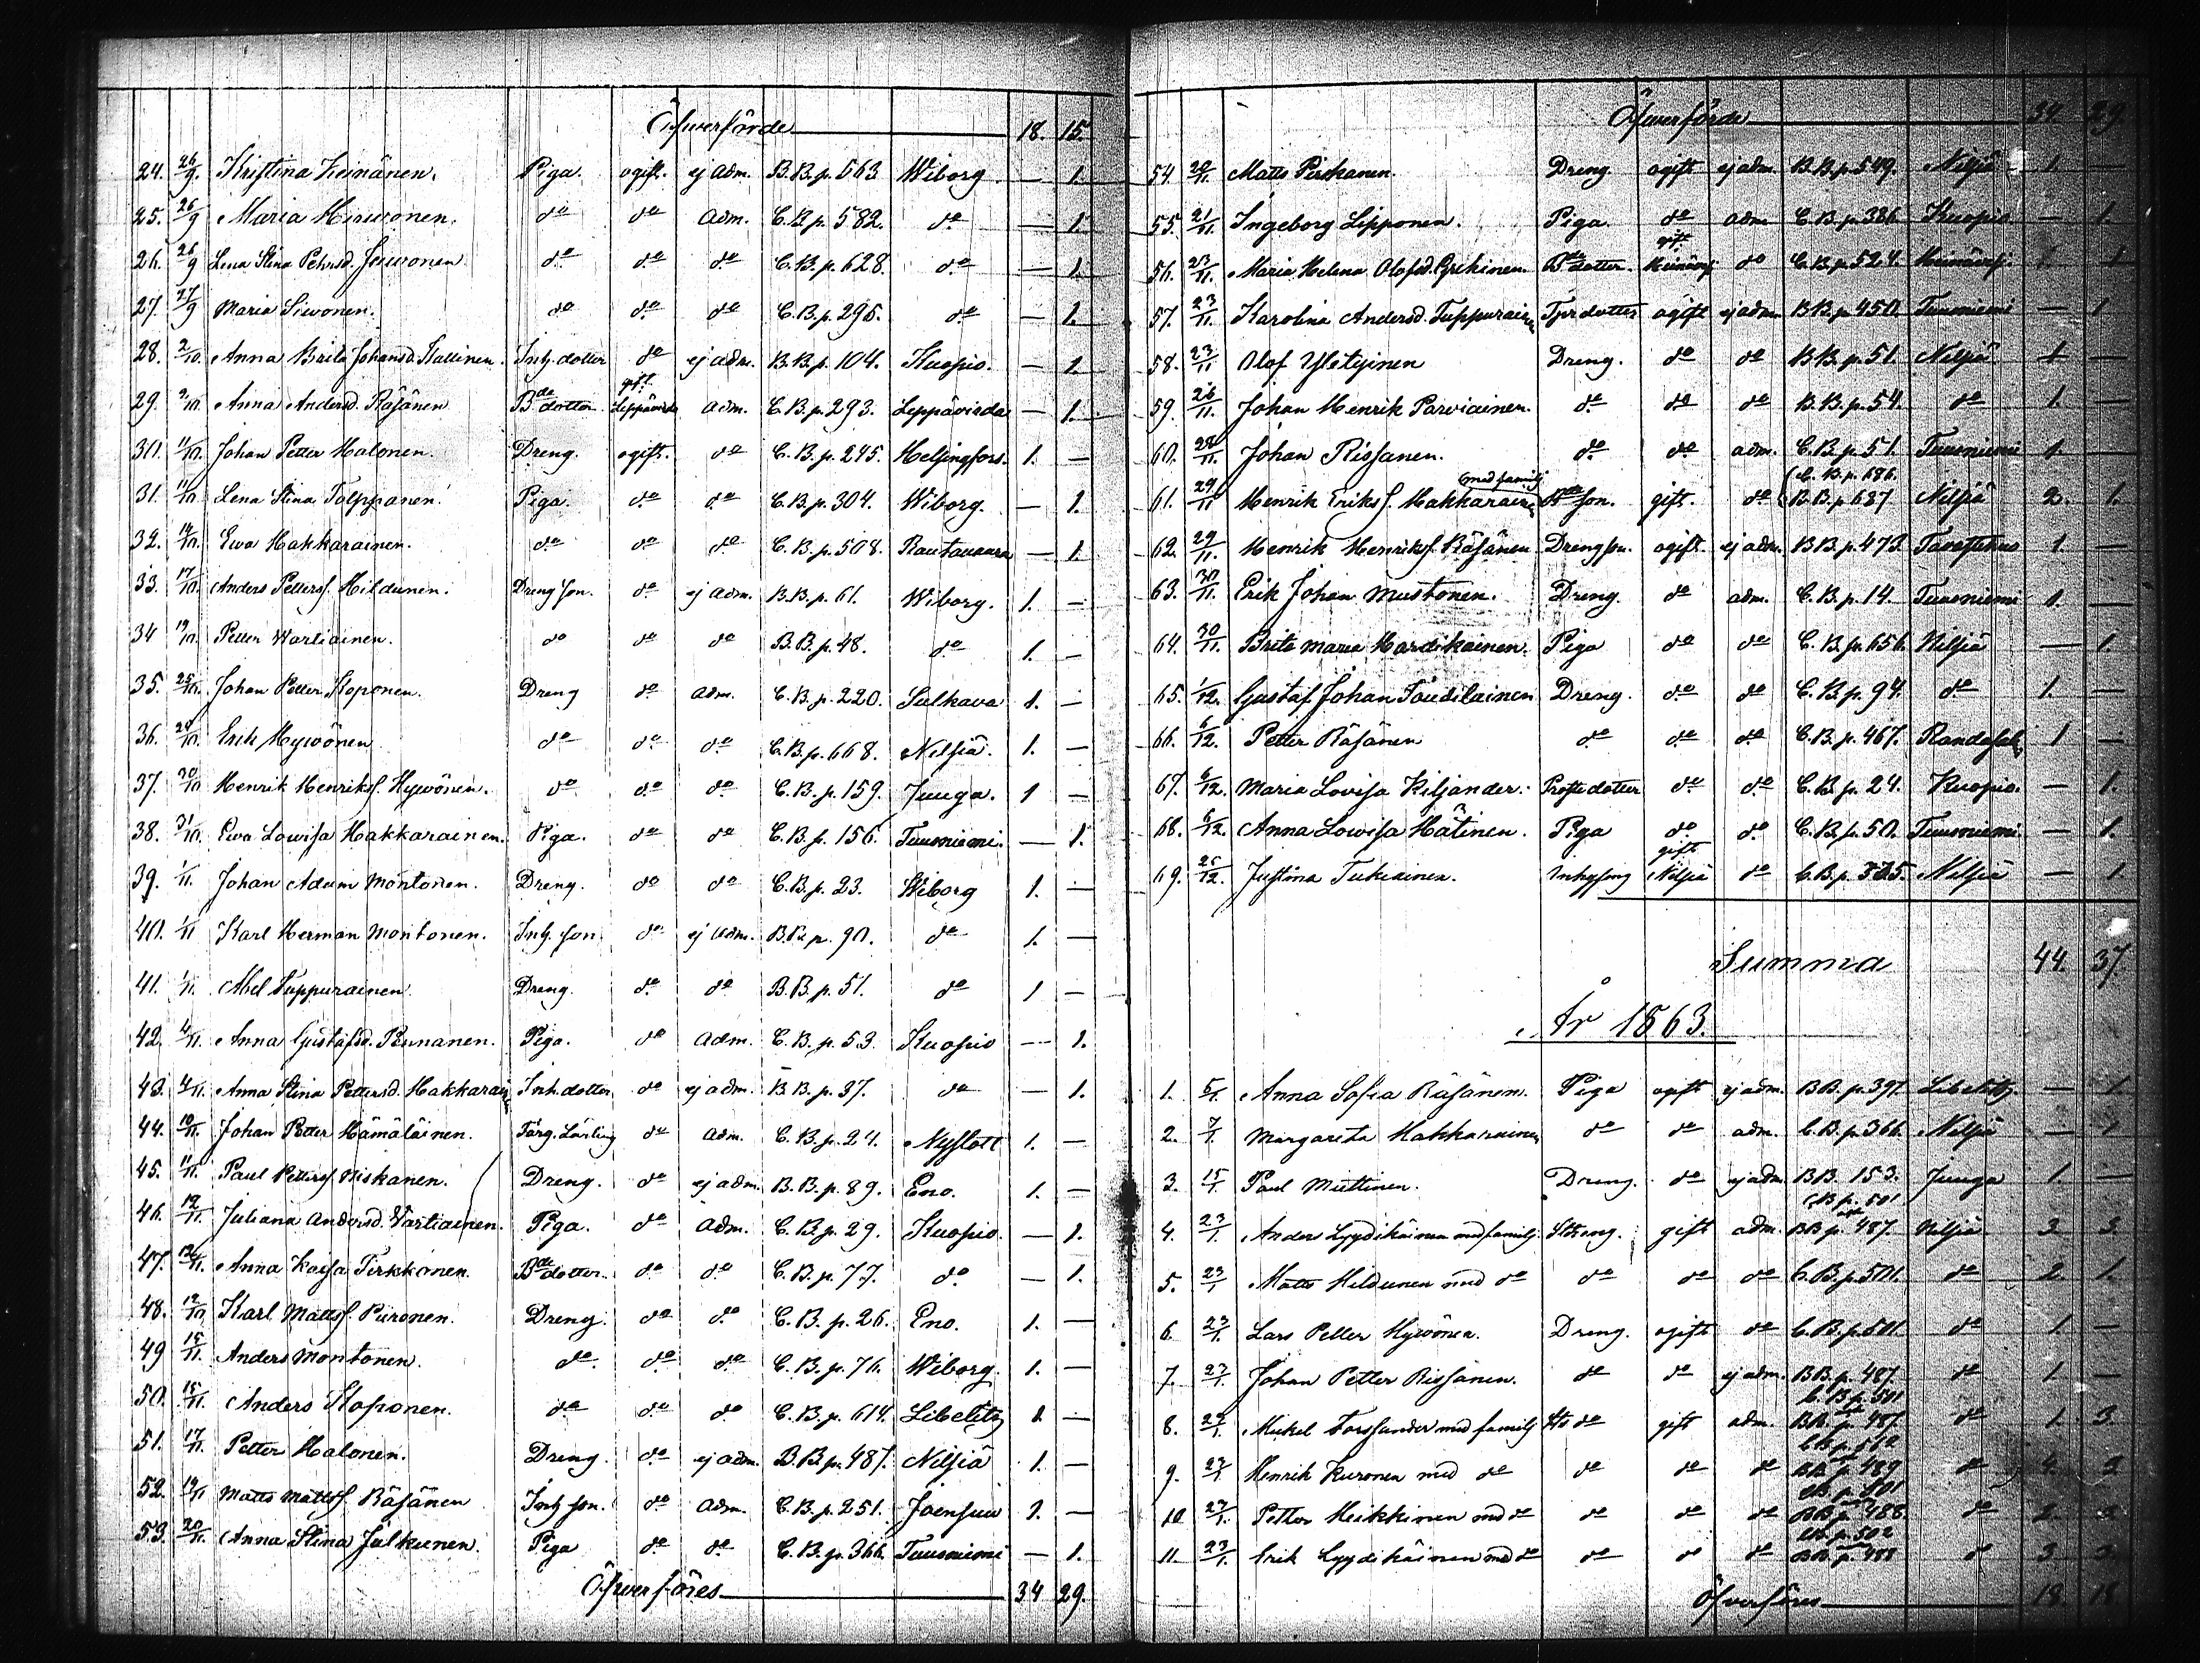 Öfverförde 18. 15.
24. 26/9. Kristina Heinänen. Piga. ogift. ej adm. B.B. p. 563 Wiborg — 1.
25. 26/9 Maria Hirwonen. do do adm. C.B. p. 582. do — 1.
26. 26/9 Lena Stina Pehrsd. Juwonen do do do C.B. p. 628. do — 1.
27. 27/9 Maria Siwonen. do do do C.B. p. 295. do — 1.
28. 2/10. Anna Brita Johansd. Kallinen. Inh. dotter do ej adm. B.B. p. 104. Kuopio. — 1
29. 9/10. Anna Andersd. Räsänen Bde dotter gift Leppävirda adm. C.B. p. 293. Leppävirda — 1.
30. 11/10. Johan Petter Halonen. Dreng. ogift. do C.B. p. 245. Helsingfors. 1. —
31. 11/10 Lena Stina Tolppanen. Piga. do do C.B. p. 304. Wiborg. — 1.
32. 14/10. Ewa Hakkarainen. do do do C.B. p. 508. Rautavaara — 1.
33. 17/10. Anders Petterss. Hildunen. Dreng son. do ej adm. B.B. p. 61. Wiborg. 1. —
34 19/10. Petter Wartiainen. do do do B.B. p. 48. do 1. —
35. 25/10. Johan Petter Koponen. Dreng do adm. C.B. p. 220. Sulkava 1. —
36. 29/10. Erik Hywönen do do do C.B. p. 668. Nilsiä. 1. —
37. 30/10 Henrik Henrikss. Hywönen. do do do C.B. p. 159. Juuga. 1 —
38. 31/10. Ewa Lowisa Hakkarainen. Piga. do do C.B. p. 156. Tuusniemi. — 1.
39. 1/11. Johan Adam Montonen. Dreng. do do C.B. p. 23. Wiborg 1. —
40. 1/11 Karl Herman Montonen. Inh. son do ej adm. B.B. p. 90. do 1. —
41. 1/11. Abel Tuppurainen Dreng. do do B.B. p. 51. do 1 —
42. 4/11. Anna Gustafsd. Punanen. Piga. do adm. C.B. p. 53. Kuopio — 1.
43. 4/11. Anna Stina Pettersd. Hakkarain Inh. dotter do ej adm. B.B. p. 37. do — 1.
44. 10/11. Johan Petter Hämäläinen. Färg. Lärling do adm. C.B. p. 24. Nyslott 1. —
45. 11/11. Paul Petterss. Niskanen. Dreng. do ej adm. B.B. p. 89. Eno. 1. —
46. 12/11. Juliana Andersd. Wartiainen. Piga. do adm. C.B. p. 29. Kuopio. — 1.
47. 12/11. Anna Kaisa Tirkkonen. Bde dotter. do do C.B. p. 77. do — 1.
48. 12/11 Karl Mattss. Piironen. Dreng. do do C.B. p. 26. Eno. 1. —
49 15/11. Anders Montonen. do do do C.B. p. 76. Wiborg 1. —
50. 15/11. Anders Koponen. do do do C.B. p. 614. Libelitz 1. —
51. 17/11. Petter Halonen. Dreng. do ej adm. B.B. p. 487. Nilsiä 1. —
52. 19/11 Matts Mattss. Räsänen Inh. son. do adm. C.B. p. 251. Joensuu 1. —
53. 20/11. Anna Stina Julkunen. Piga do do C.B. p. 366. Tuusniemi — 1.
Öfverföres 34 29.
Öfverförde 34. 29
54. 20/11. Matts Pirskanen. Dreng. ogift ej adm. B.B. p. 549. Nilsiä 1. —
55. 21/11. Ingeborg Lipponen. Piga. do adm C.B. p. 386 Kuopio — 1.
56. 23/11. Maria Helena Olofsd. Bde dotter. gift do C.B. p. 524. 1
57. 23/11. Karolina Andersd. Tuppurain dotter ogift ej adm. B.B. p. 450. Tuusniemi — 1
58. 23/11 Olof Dreng. do do B.B. p. 51. Nilsiä 1 —
59. 26/11. Johan Henrik Parviainen. do do do B.B. p. 54. do 1. —
60. 28/11. Johan Rissanen. do do adm. C.B. p. 51. Tuusniemi 1. —
61. 29/11 Henrik Erikss. Hakkarain med familj Bde son. gift. do C.B. p. 686. B.B. p. 687 Nilsiä 2. 1.
62. 29/11. Henrik Henrikss. Räsänen Dreng son. ogift ej adm. B.B. p. 473. 1. —
63. 30/11. Erik Johan Mustonen. Dreng. do adm. C.B. p. 14. Tuusniemi 1. —
64. 30/11. Brita Maria Hardikainen. Piga do do C.B. p. 656. Nilsiä — 1.
65. 1/12. Gustaf Johan Dreng. do do C.B. p. 94. do 1. —
66. 6/12. Petter Räsänen do do do C.B. p. 467. Randasal 1 —
67. 6/12. Maria Lovisa Kiljander. Prosts dotter do do C.B. p. 24. Kuopio. — 1.
68. 6/12. Anna Lowisa Hätinen. Piga do do C.B. p. 50. Tuusniemi — 1.
69. 25/12. Justina Tukiainen. Inhysing gift Nilsiä do C.B. p. Nilsiä — 1
Summa 44. 37.
År 1863.
1. 5/1. Anna Sofia Räsänen. Piga ogift ej adm. B.B. p. 397. Libelitz. — 1.
2. 7/1. Margareta Hakkarainen do do adm. C.B. p. 366. Nilsiä — 1
3. 15/1. Paul Miettinen. Dreng. do ej adm. B.B. 153. Juuga 1. —
4. 23/1. Anders Lyydikäinen med familj gift adm. C.B. p. 501 B.B. p. 487. Nilsiä 3 3.
5. 23/1 Matts Hildunen med do do do do C.B. p. 501. do 2. 1.
6. 23/1. Lars Petter Hywönen. Dreng. ogift do C.B. p. 501. do 1. —
7. 23/1. Johan Petter Rissanen. do do ej adm. B.B. p. 487. do 1 —
8. 23/1. Mickel Forssander med familj do gift adm. C.B. p. 501 B.B. p. 487. do 1. 3.
9. 23/1. Henrik Kuronen med do do do do C.B. p. 512 B.B. p. 489 do 4. 2
10. 23/1. Petter Heikkinen med do do do do C.B. p. 501 B.B. p. 488. do 2.
11. 23/1. Erik Lyydikäinen med do do do do C.B. p. 502 B.B. p. 488 do 3.
Öfverföres